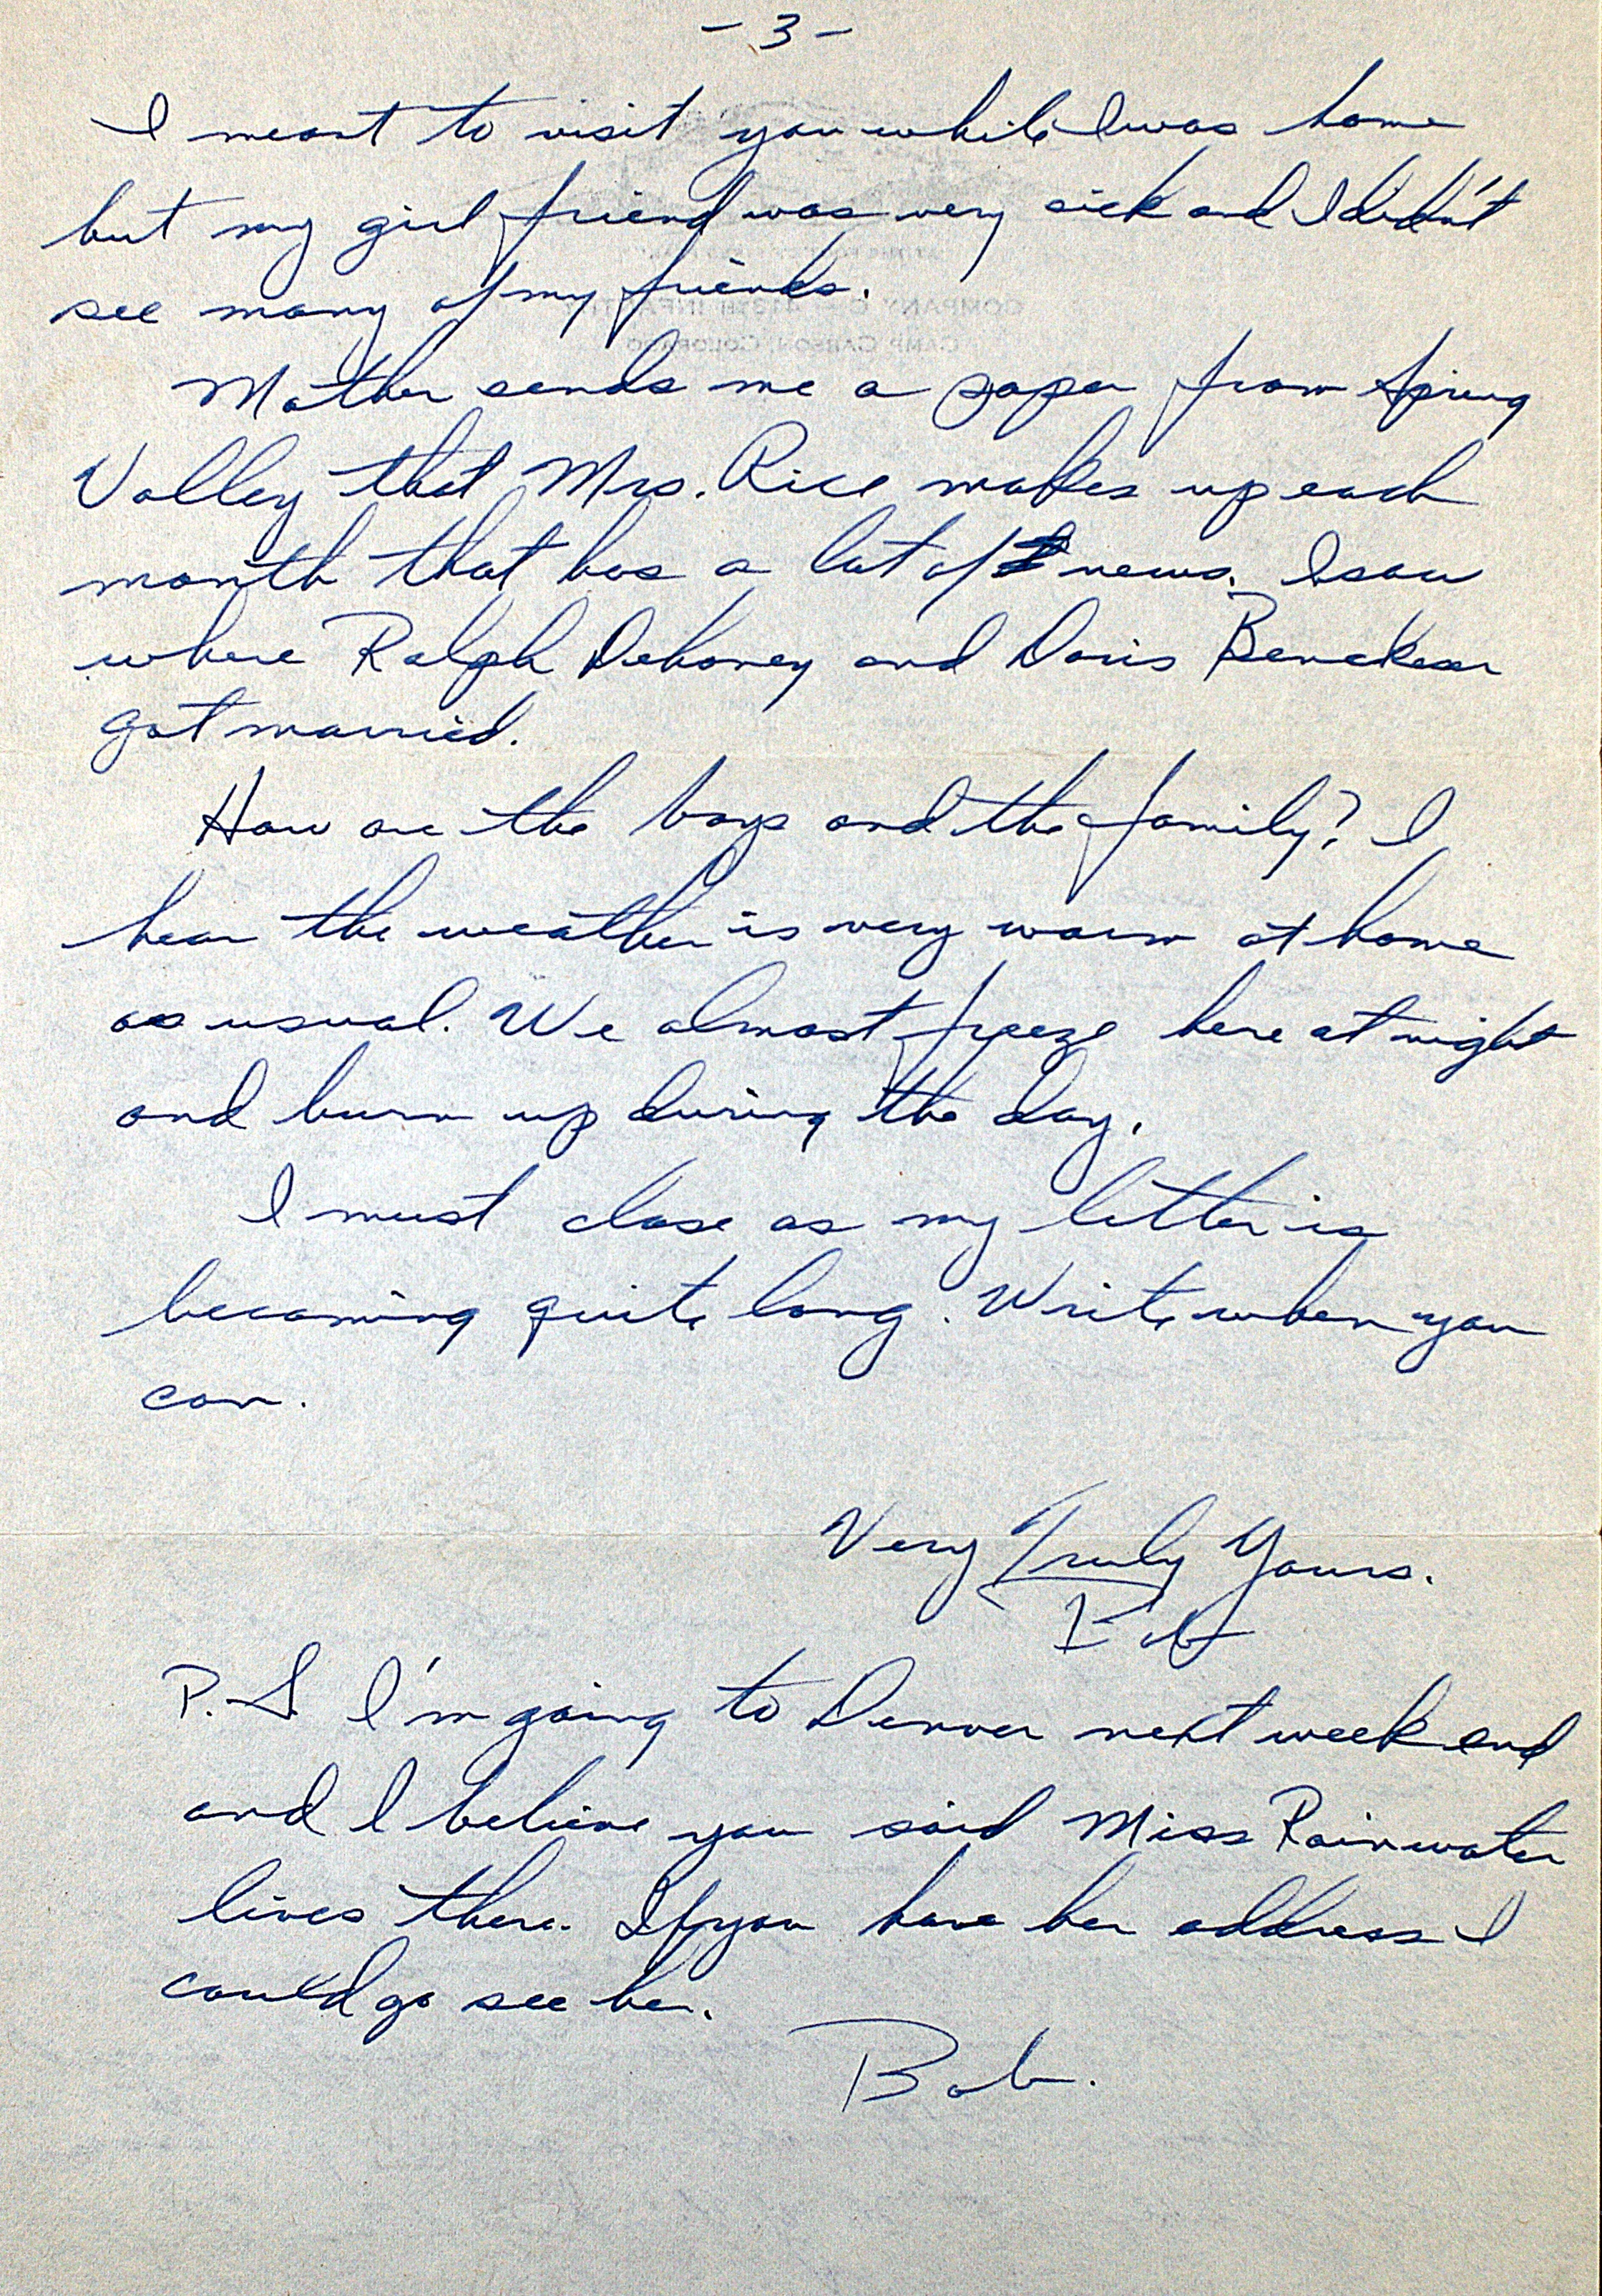 - 3 -
I meant to visit you while I was home
but my girl friend was very sick and I didn't
see many of my friends.
Mother sends me a paper from Spring
Valley that Mrs. Rice makes up each
month that has a lot of news. I saw
where Ralph Dehoney and Doris
got married.
How are the boys and the family? I
hear the weather is very warm at home
as usual. We almost freeze here at night
and burn up during the day.
I must close as my letter is
becoming quite long. Write when you
can.
Very Truly Yours.
Bob
P.S. I'm going to Denver next week end
and I believe you said Miss Rainwater
lives there. If you have her address I
could go see her.
Bob.